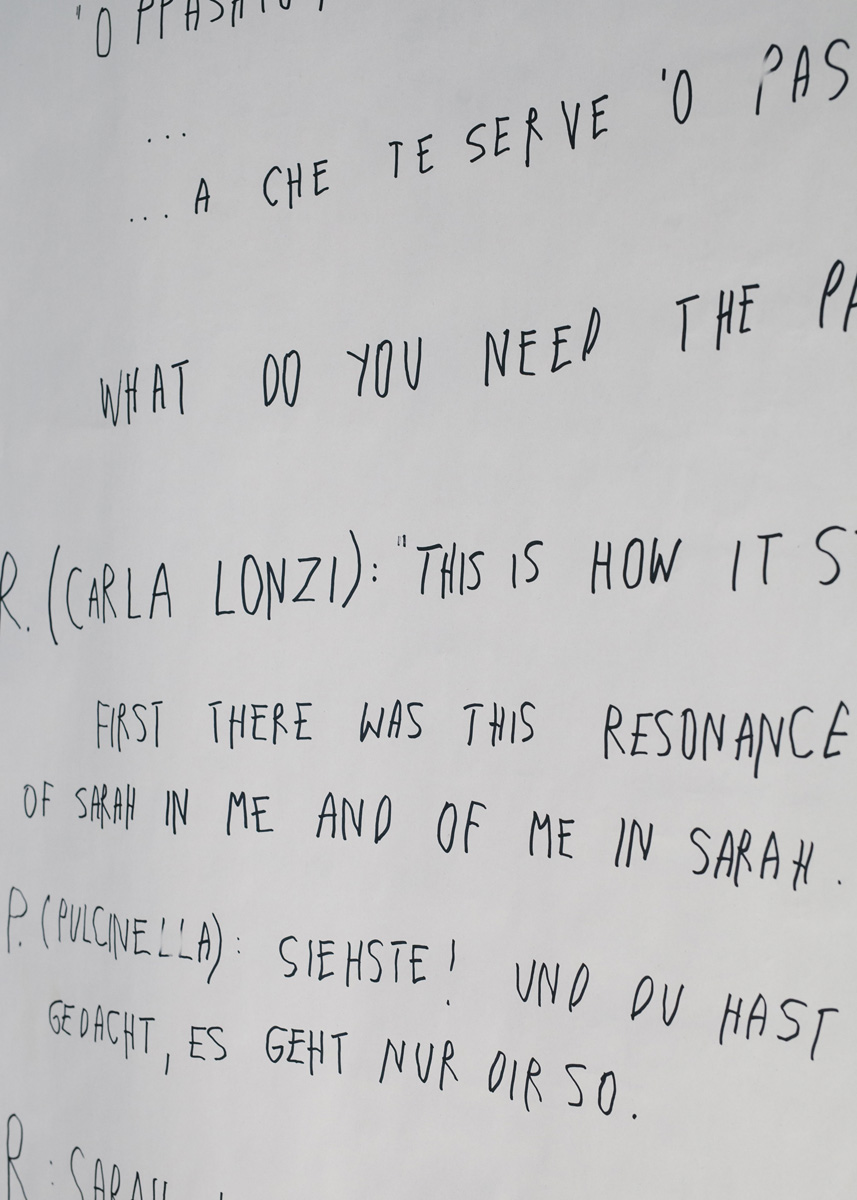 'O
...
... A CHE TE SERVE 'O
WHAT DO YOU NEED THE
R. (CARLA LONZI): "THIS IS HOW IT
FIRST THERE WAS THIS RESONANCE
OF SARAH IN ME AND OF ME IN SARAH.
P. (PULCINELLA): SIEHSTE! UND DU HAST
GEDACHT, ES GEHT NUR DIR SO.
R: SARAH